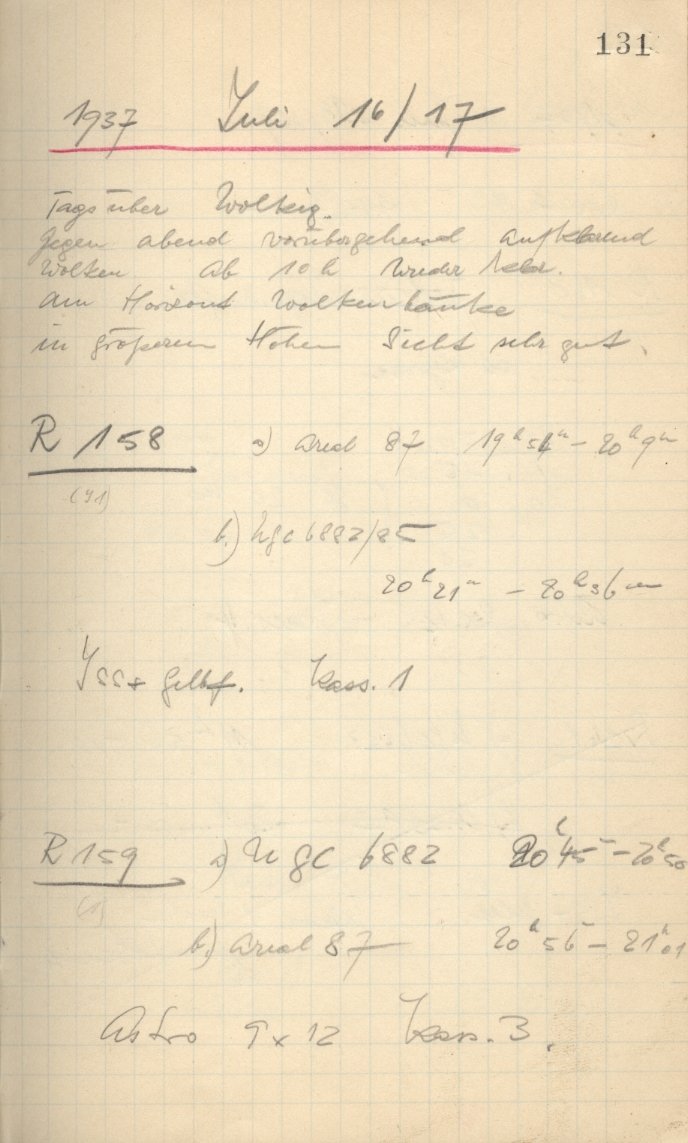 131
1937 Juli 16/17
Tags über Wolkig.
Gegen abend vorübergehend aufklarend
Wolken ab 10 h wieder klar.
am Horizont Wolkenbänke
in größeren Höhen Sicht sehr gut.
R 158 a) Areal 87 19h 54m - 20h 9m
b.) Ngc 6882/85
20h 21m - 20h 36m
Gelbf. Kass. 1
R 159 a) Ngc 6882 20h 45m - 20h 50
(1)
b.) Areal 87 20h 56m - 21h 01
Astro 9 x 12 Kass. 3.